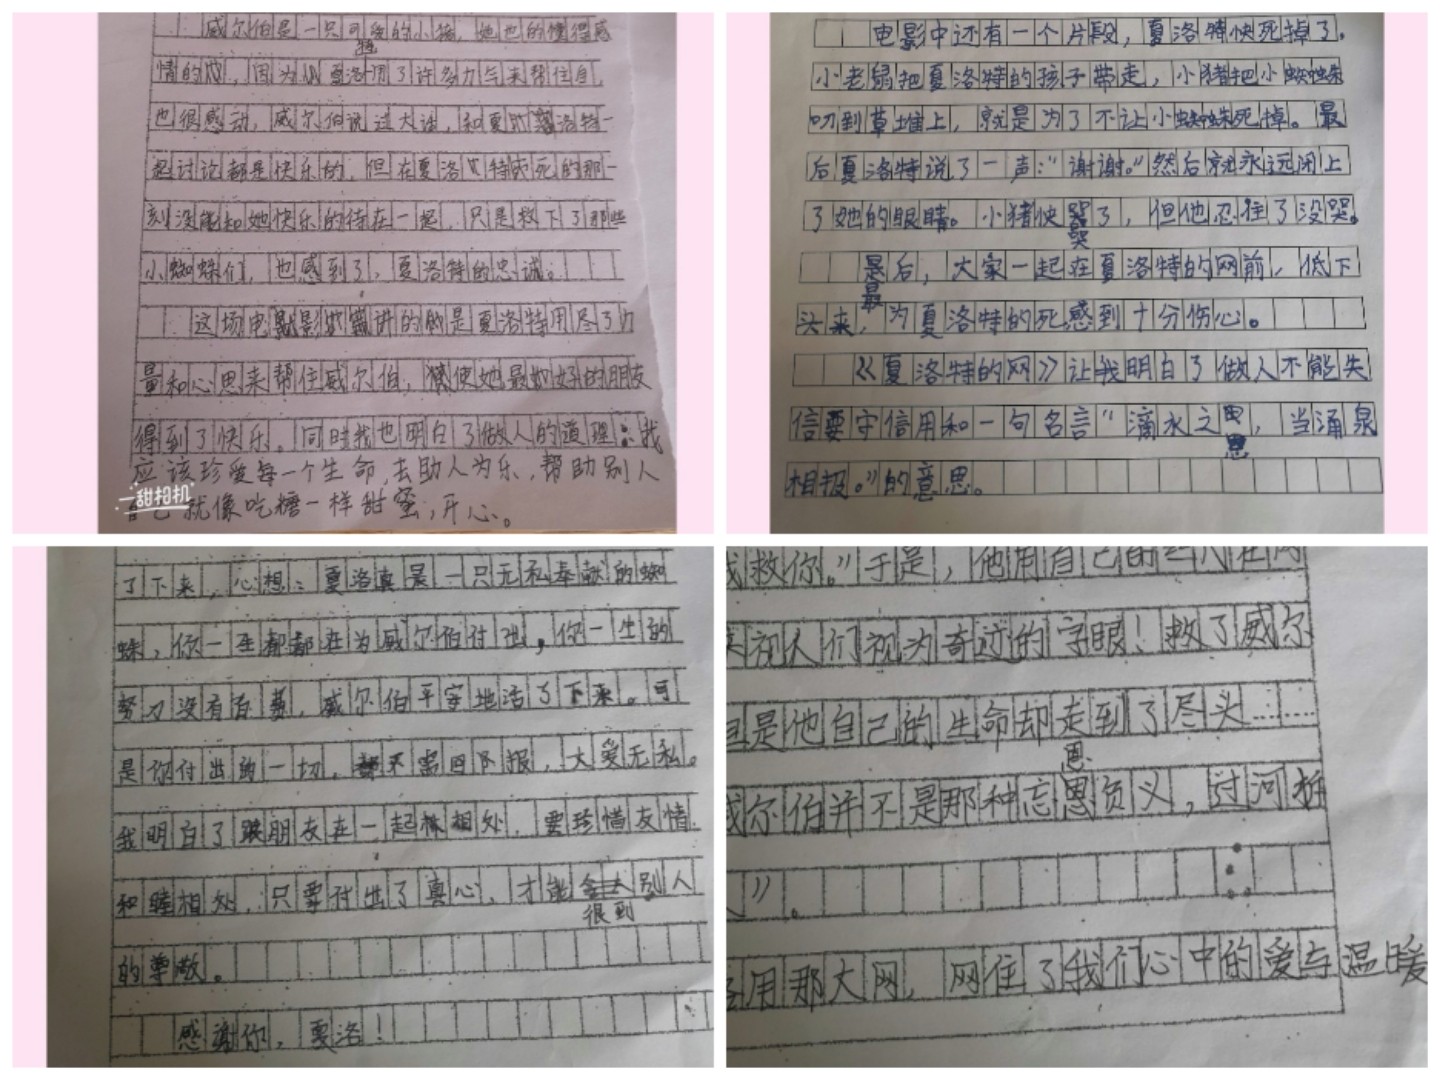 威尔伯是一只可爱的小猪，她也的懂得感
情的 ，因为 夏洛特用了许多力气来帮住自
也很感动，威尔伯说过大话，和夏 洛特一
起讨论都是快乐的，但在夏洛 特 死的那一
刻没能和她快乐的待在一起，只是救下了那些
小蜘蛛们，也感到了，夏洛特的忠诚。
这场电影 讲的 是夏洛特用尽了力
量和心思来帮住威尔伯， 使她最 好的朋友
得到了快乐。同时我也明白了做人的道理：我
应该珍爱每一个生命，去助人为乐，帮助别人
自己就像吃糖一样甜蜜，开心。
甜相机
电影中还有一个片段，夏洛特快死掉了。
小老鼠把夏洛特的孩子带走，小猪把小蜘蛛
叨到草堆上，就是为了不让小蜘蛛死掉。最
后夏洛特说了一声：“谢谢。”然后就永远闭上
了她的眼睛。小猪快哭了，但他忍住了没哭。
最后，大家一起在夏洛特的网前，低下
头来，为夏洛特的死感到十分伤心。
《夏洛特的网》让我明白了做人不能失
信要守信用和一句名言“滴水之恩，当涌泉
相报。”的意思。
了下来，心想：夏洛真是一只无私奉献的蜘
蛛，你一生都都在为威尔伯付出，你一生的
努力没有白费，威尔伯平安地活了下来。可
是你付出的一切， 不需回 报，大爱无私。
我明白了跟朋友在一起 相处，要珍惜友情
和睦相处，只要付出了真心，才能 别人
很到
的尊敬。
感谢你，夏洛！
救你。”于是，他用自己的
视人们视为奇迹的字眼！救了威尔
但是他自己的生命却走到了尽头……
恩
威尔伯并不是那种忘恩负义，过河拆
”。
用那大网，网住了我们心中的爱与温暖